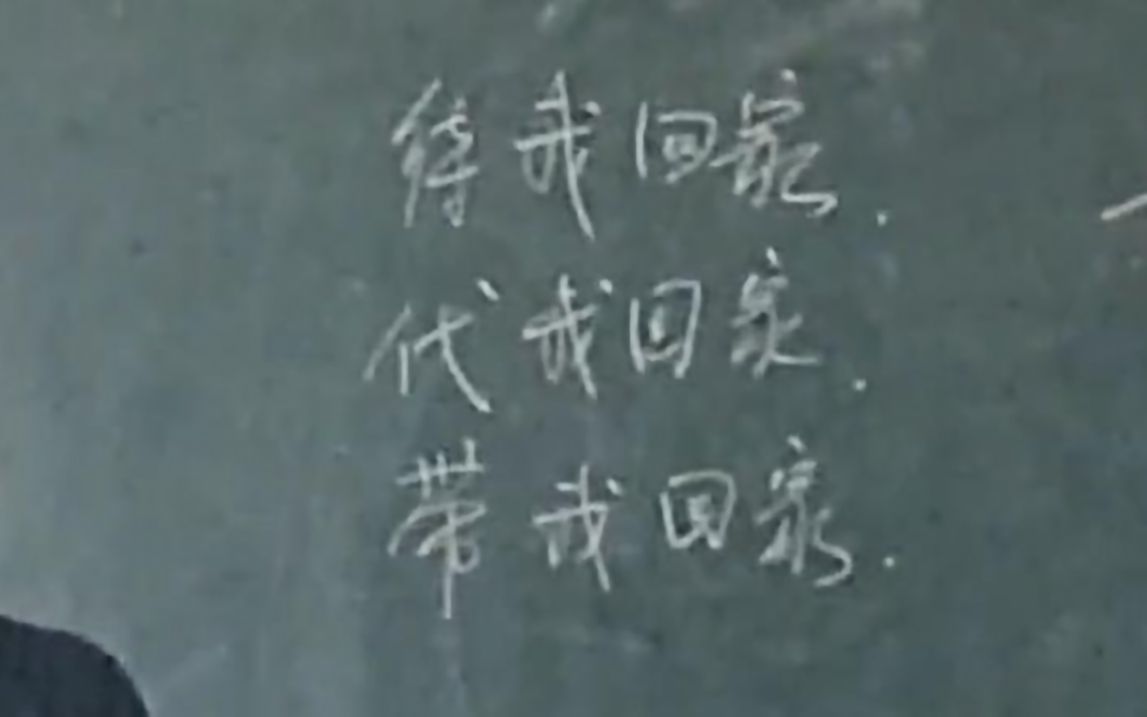 待我回家.
代我回家.
带我回家.